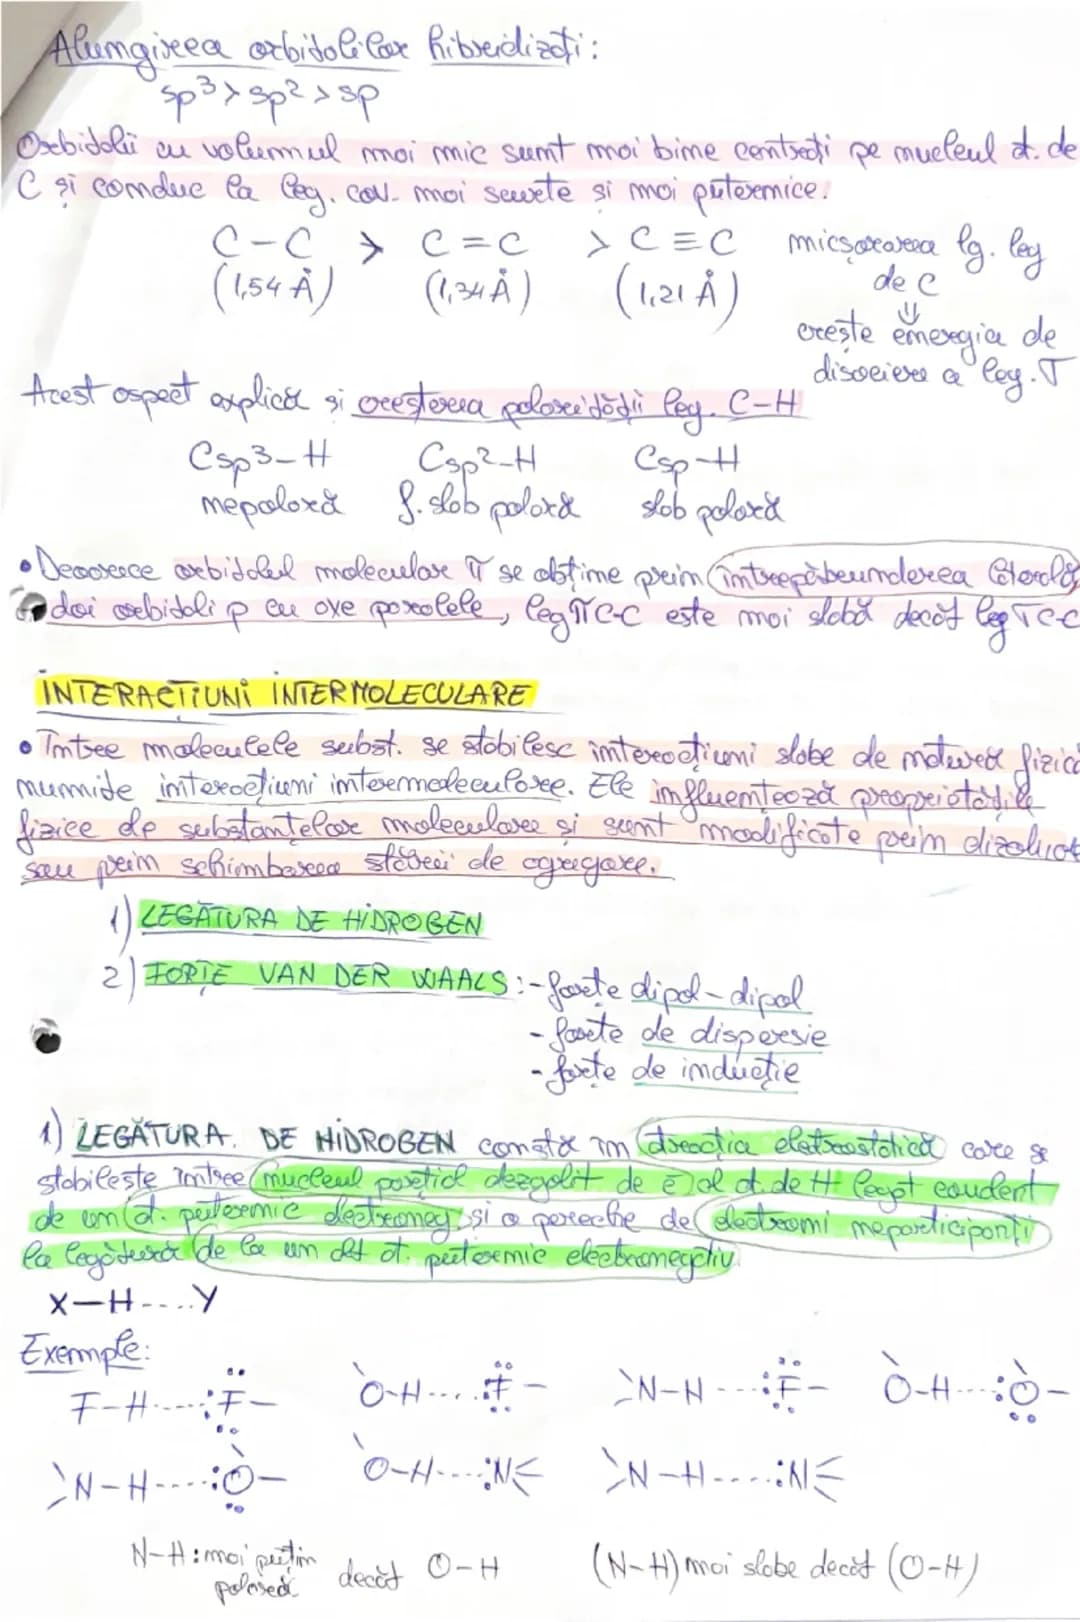 Alungirea orbitalilor hibridizați:
sp³ > sp² > sp
Orbitalii cu volumul mai mic sunt mai bine centrați pe nucleul at. de
C și conduc la leg. cov. mai scurte și mai puternice.
C – C > C = C > C ≡ C micșorarea lg. leg
(1,54 Å) (1,34 Å) (1,21 Å) de C
⇓
crește energia de
disociere a leg. σ
Acest aspect explică și creșterea polarității leg. C-H
Csp3-H Csp²-H Csp-H
nepolară f. slab polară slab polară
• Deoarece orbitalul molecular π se obține prin întrepătrunderea laterală
a doi orbitali p cu axe paralele, leg π C-C este mai slabă decât leg σ C-C
INTERACȚIUNI INTERMOLECULARE
• Între moleculele subst. se stabilesc interacțiuni slabe de natură fizică
numite interacțiuni intermoleculare. Ele influențează proprietățile
fizice ale substanțelor moleculare și sunt modificate prin dizolvare
sau prin schimbarea stării de agregare.
1) LEGĂTURA DE HIDROGEN
2) FORȚE VAN DER WAALS: - forțe dipol-dipol
- forțe de dispersie
- forțe de inducție
1) LEGĂTURA. DE HIDROGEN constă în atracția electrostatică care se
stabilește între nucleul parțial dezgolit de ē al at. de H legat covalent
de un at. puternic electroneg și o pereche de electroni neparticipanți
la legătură de la un alt at. puternic electronegativ.
X–H----Y
Exemple:
F-H----:F- O-H----:F- N-H----:F- O-H----:O-
N-H----:O- O-H----:N N-H----:N
N-H: mai puțin decât O-H (N-H) mai slabe decât (O-H)
polară